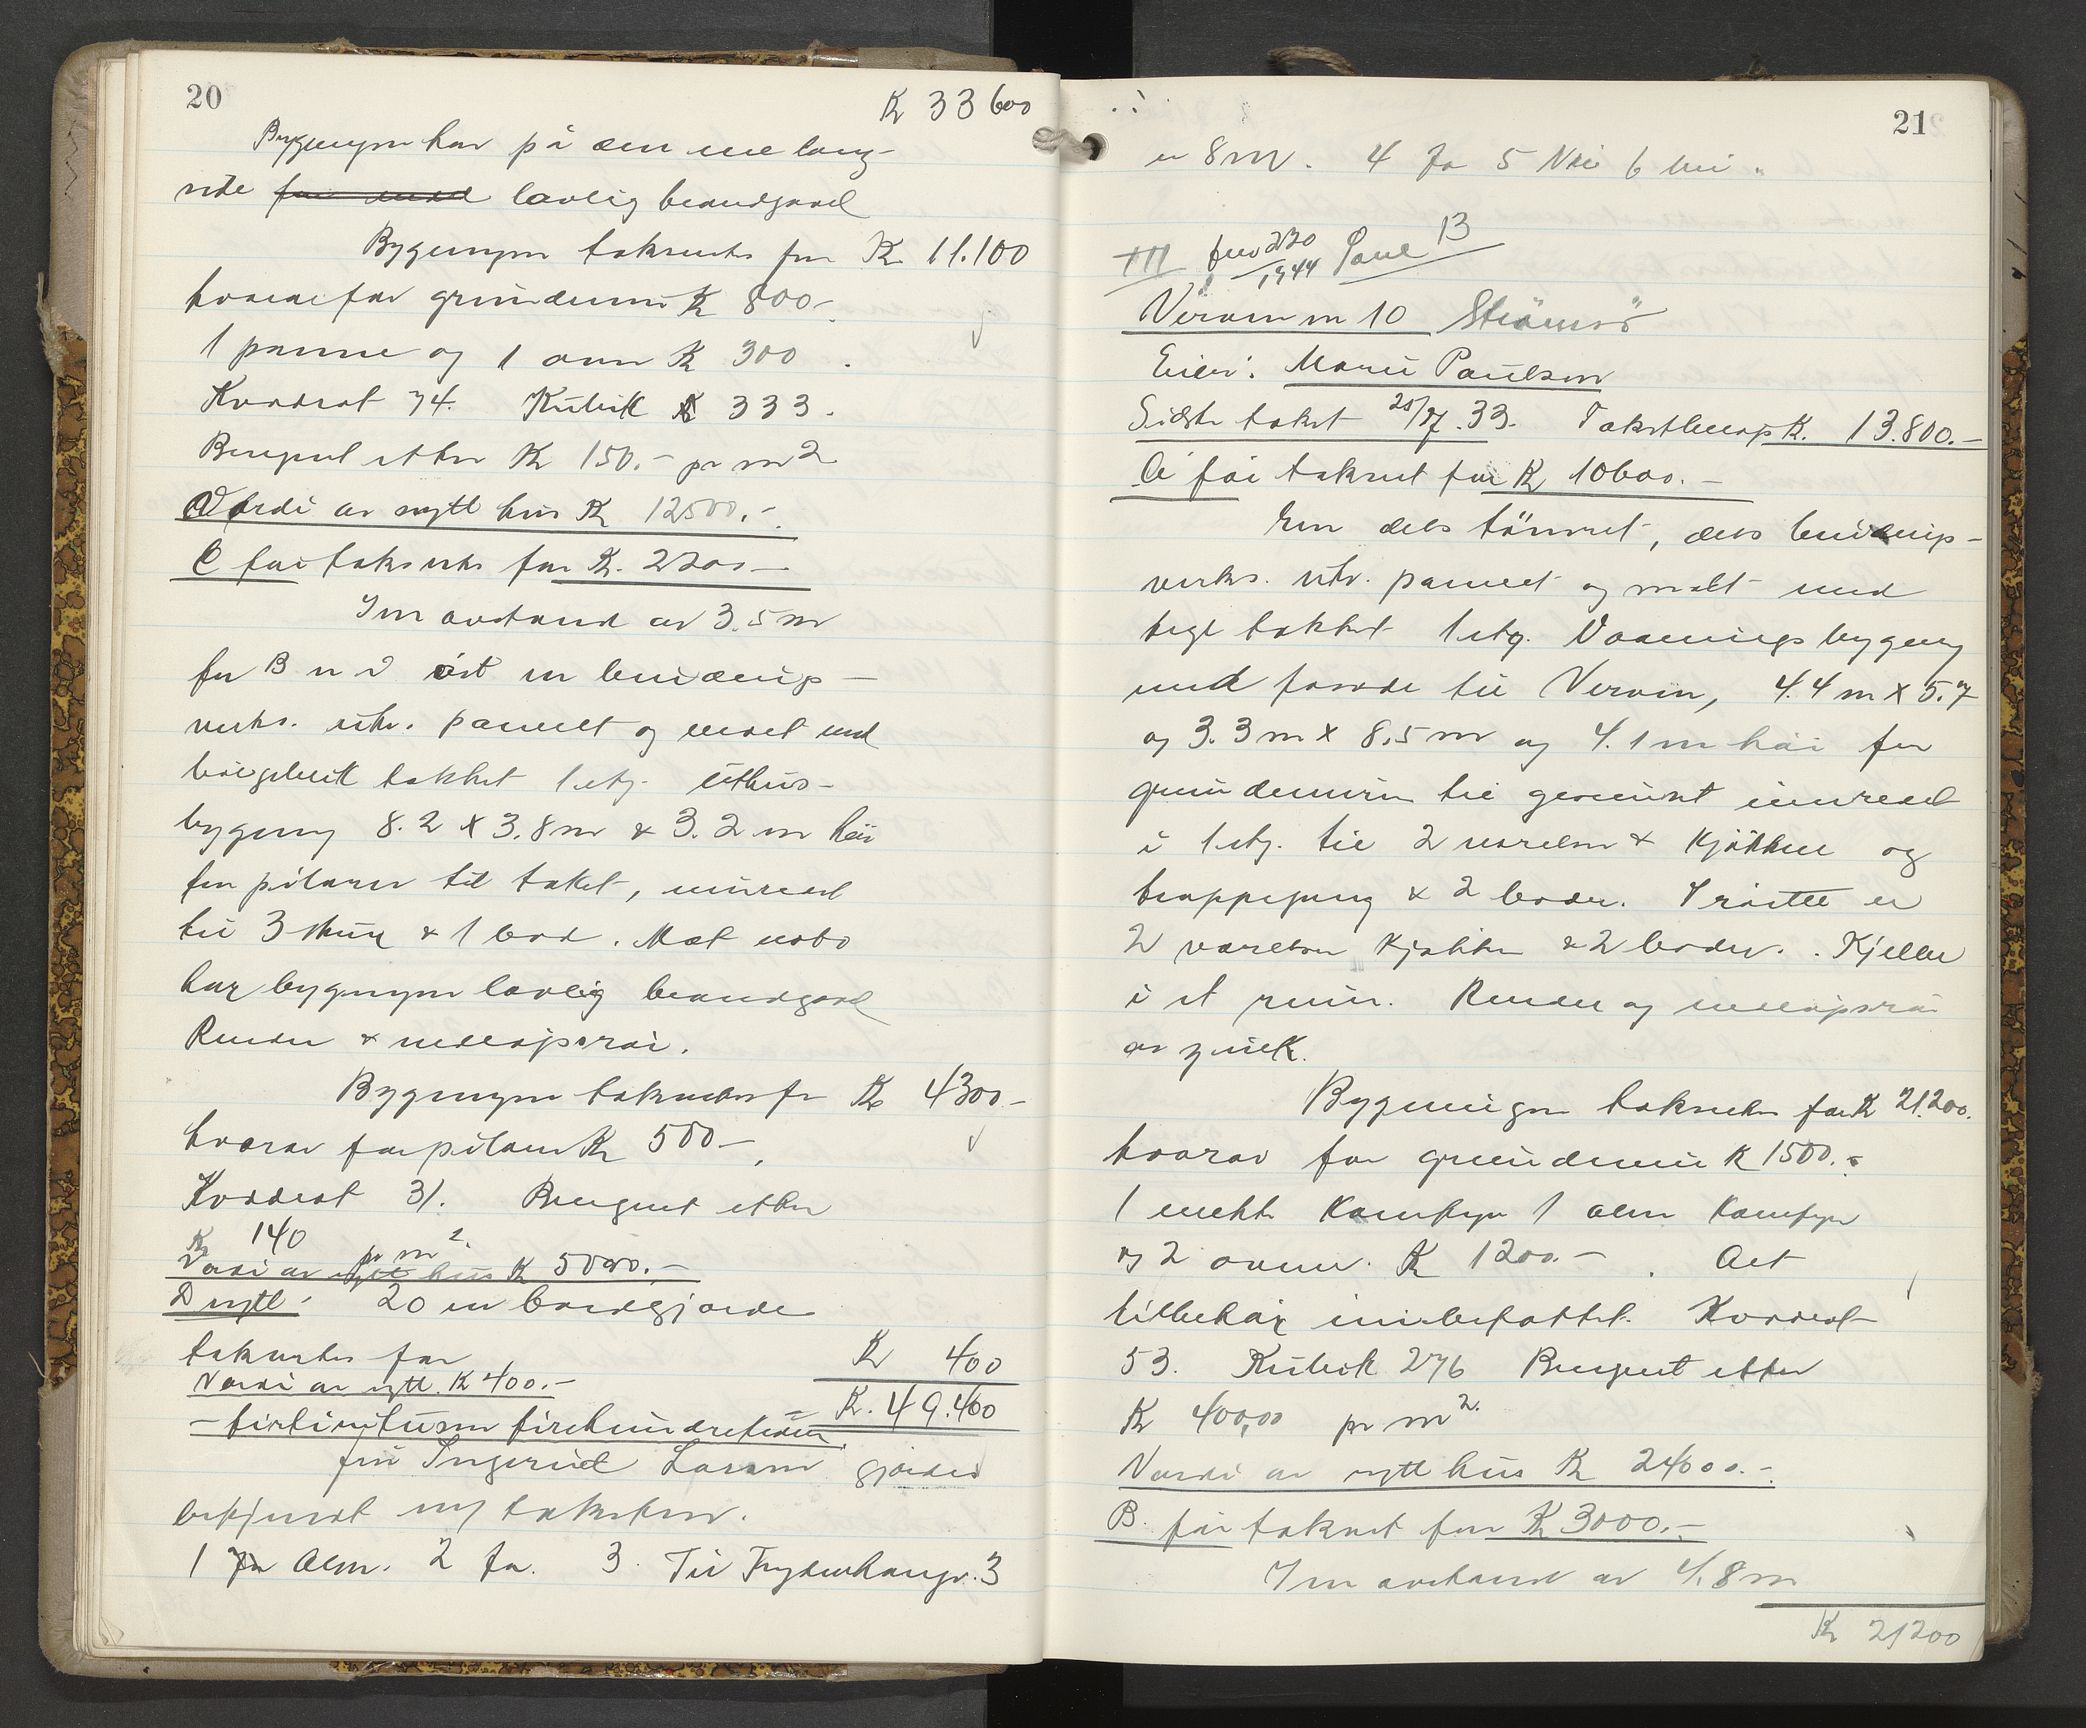 20
Kr 33600
Bygningen har på den ene lang-
side for med lovlig brandgavl
Bygningen takseres for Kr 11.100
hvorav for grundmur Kr 800.-
1 panne og 1 ovn Kr 300.
Kvadrat 74. Kubik 333.
Beregnet etter Kr 150.- pr m2
Værdi av nytt hus Kr 12500.-
C før takseret for Kr. 2200-
I en avstand av 3.5 m
fra B en bindings-
verks. utv. panelt og malt med
bølgeblikk tekket 1 etg. uthus-
bygning 8.2 x 3.8 m & 3.2 m høi
fra pilarer til taket, innredet
til 3 skur & 1 bod. Mot nabo
har bygningen lovlig brandgavl
Render & nedløpsrør.
Bygningen takseres for Kr 4300-
hvorav for pilarer Kr 500-.
Kvadrat 31. Beregnet etter
Kr 140 pr m2.
Værdi av nytt hus Kr 5000.-
D nytt. 20 m bordgjærde
takseres for Kr 400
Værdi av nytt. Kr 400.-
Kr. 49.400
- firtinitusen firehundrekroner
fru Ingerid Larsen gjordes
bekjendt med taksten.
1 Alm. 2 Ja. 3. Til Frydenhaugv. 3
21
er 8 m. 4 Ja 5 Nei 6 Nei.
III 1944 13
Verven nr 10 Strömsö
Eier: Marie Paulsen
Sidste takst 33. Takstbeløp K. 13.800.-
A før takseret for Kr 10600.-
En dels tömret, dels bindings-
verks. utv. panelt og malt med
tegl tekket 1 etg. Vaaningsbygning
med fasade til Verven, 4.4 m x 5.7
og 3.3 m x 8.5 m og 4.1 m høi fra
grundmuren til gesimset innredet
i 1 etg. til 2 værelser & kjøkken og
trappegang & 2 boder. I røstet er
2 værelser kjøkken & 2 boder. Kjeller
i et rum. Render og nedløpsrør
av zink.
Bygningen takseres for Kr 21.200.
hvorav for grundmur K 1500.-
1 komfyr 1 alm komfyr
og 2 ovner. Kr 1200.-. Alt
tilbehør innbefattet. Kvadrat
53. Kubik 276 Beregnet etter
Kr 400,00 pr m2.
Værdi av nytt hus Kr 24000.-
B. før takseret for Kr 3000.-
I en avstand av 4.8 m
Kr 21200